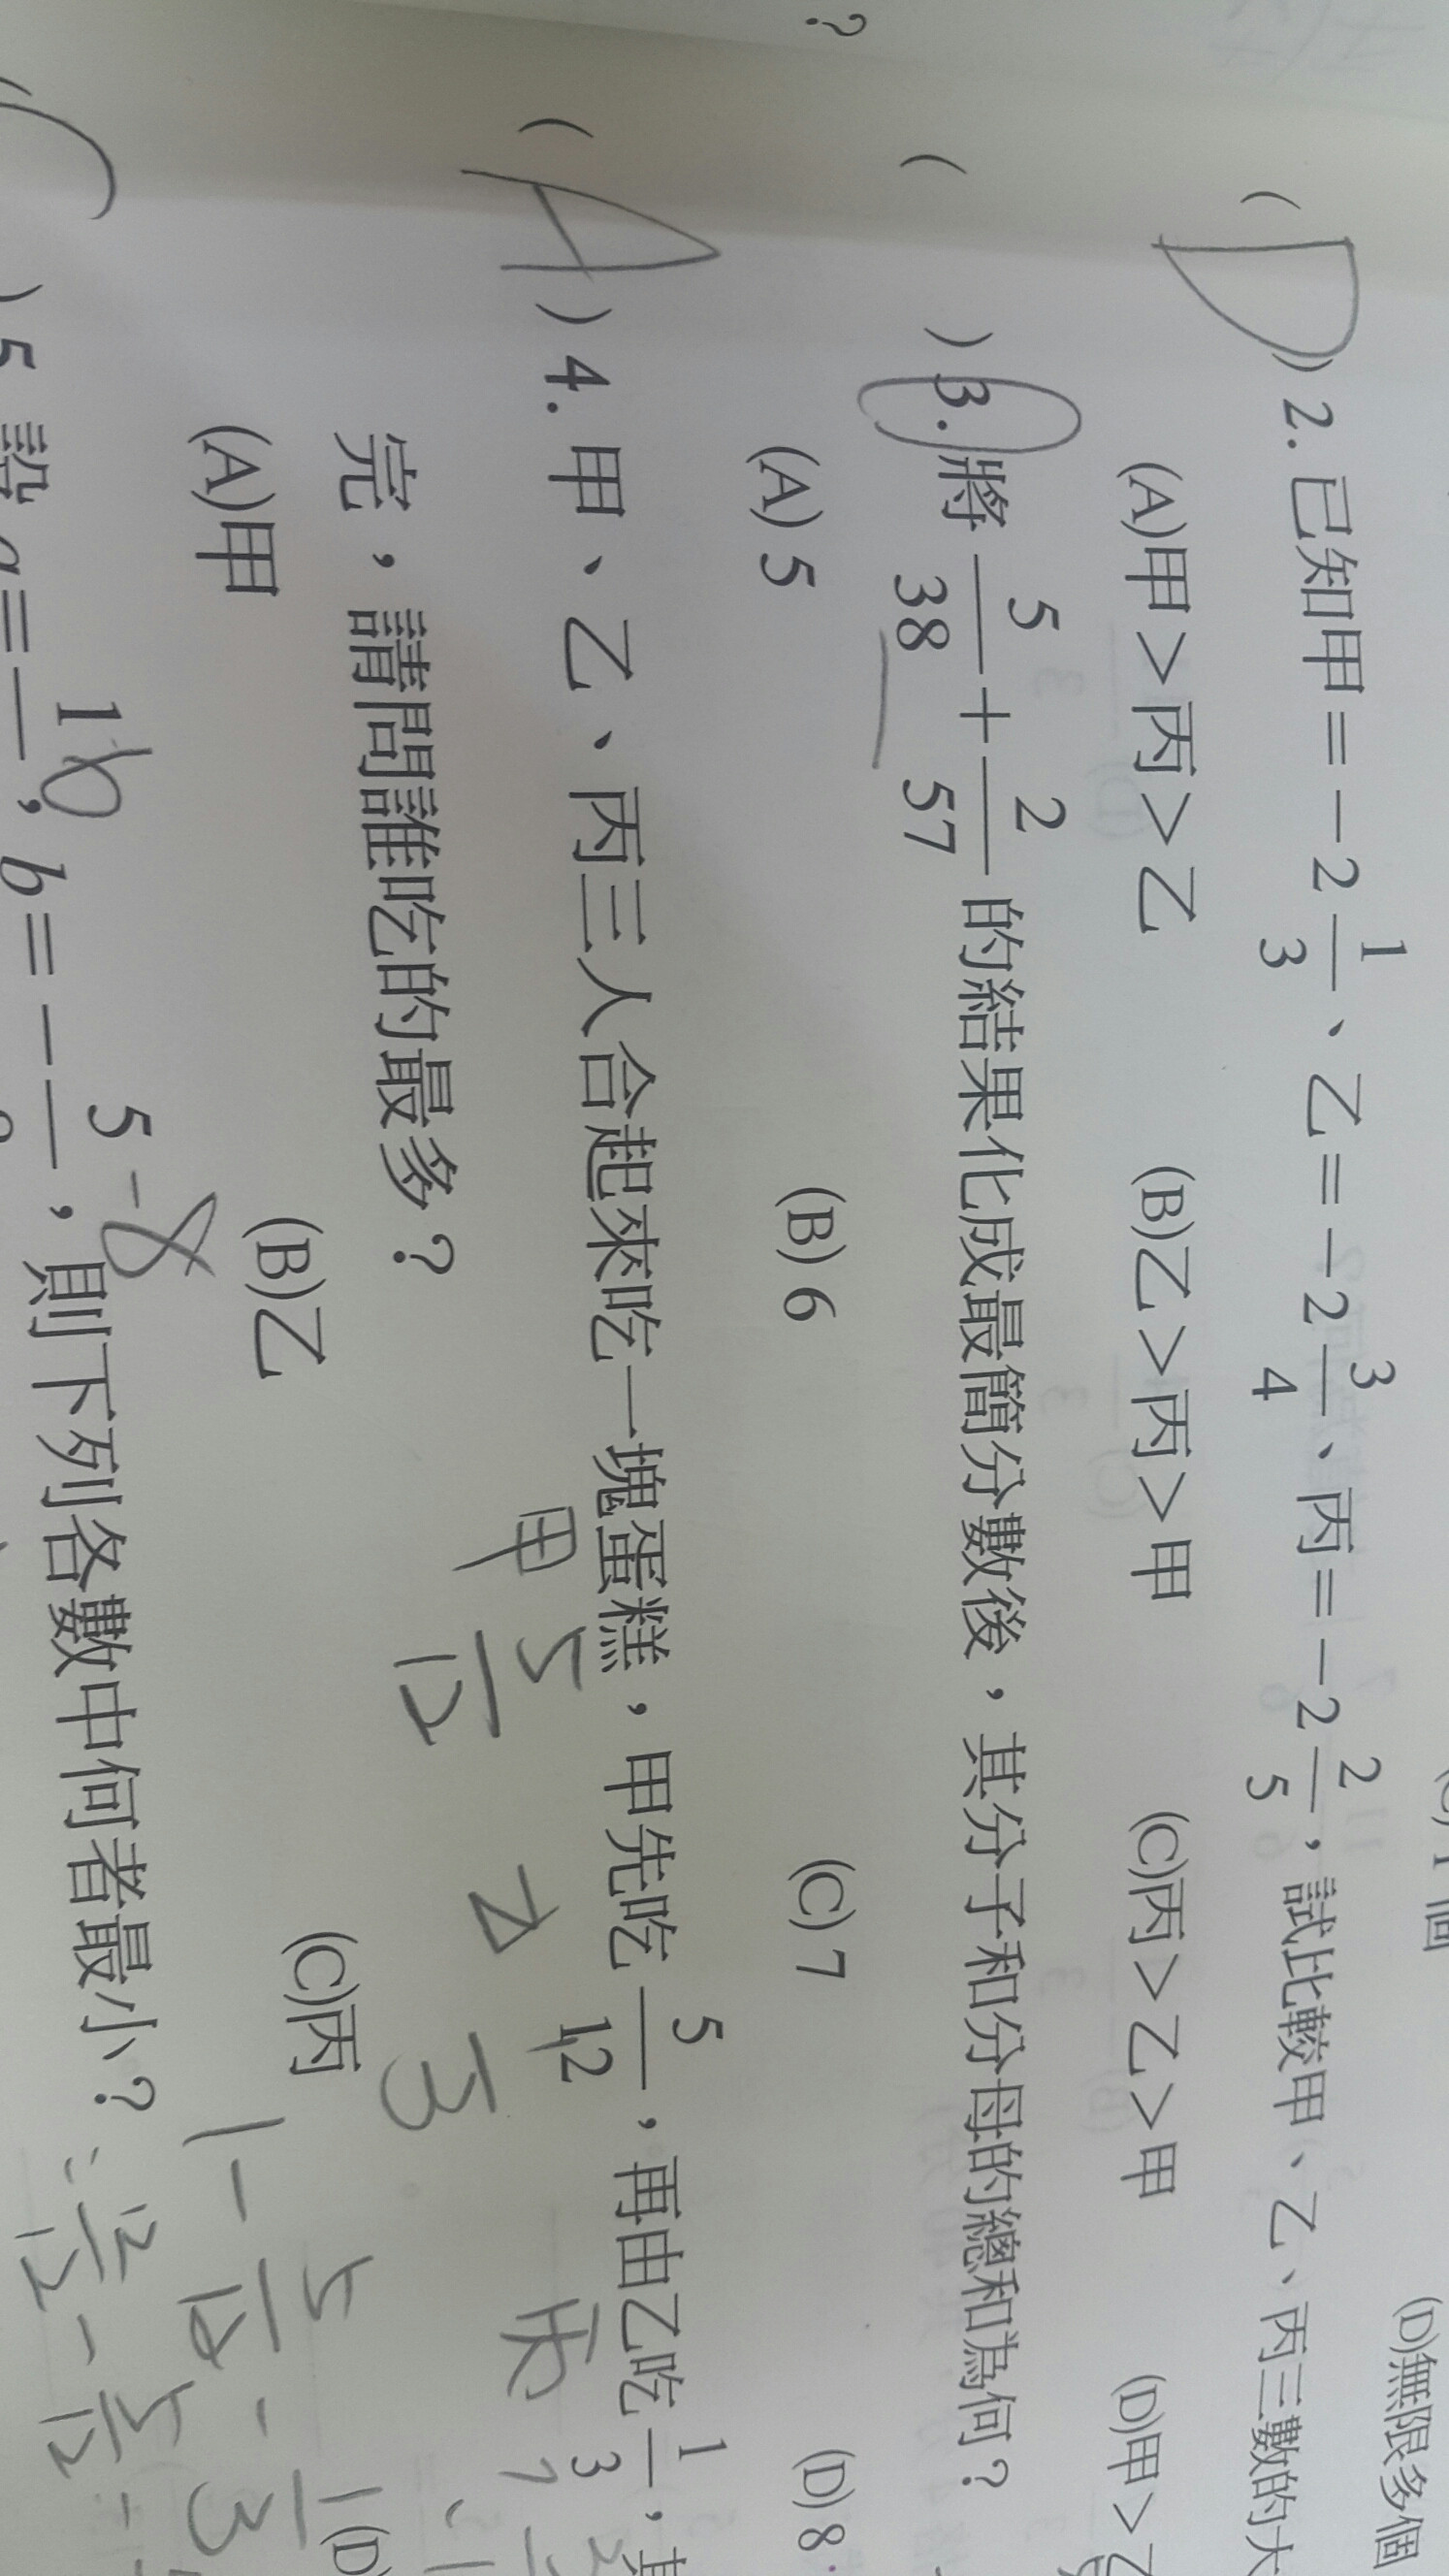 (C) 1 個 (D)無限多個
( D ) 2. 已知甲＝－2 1/3、乙＝－2 3/4、丙＝－2 2/5，試比較甲、乙、丙三數的大
(A)甲＞丙＞乙 (B)乙＞丙＞甲 (C)丙＞乙＞甲 (D)甲＞乙
( ) 3. 將 5/38 ＋ 2/57 的結果化成最簡分數後，其分子和分母的總和為何？
? (A) 5 (B) 6 (C) 7 (D) 8
( A ) 4. 甲、乙、丙三人合起來吃一塊蛋糕，甲先吃 5/12，再由乙吃 1/3，其
甲 5/12 乙 1/3 丙
完，請問誰吃的最多？
(A)甲 (B)乙 (C)丙 (D)
1－5/12－1/3
12/12－5/12－
( ) 5. 設 a＝1，b＝－5，則下列各數中何者最小？